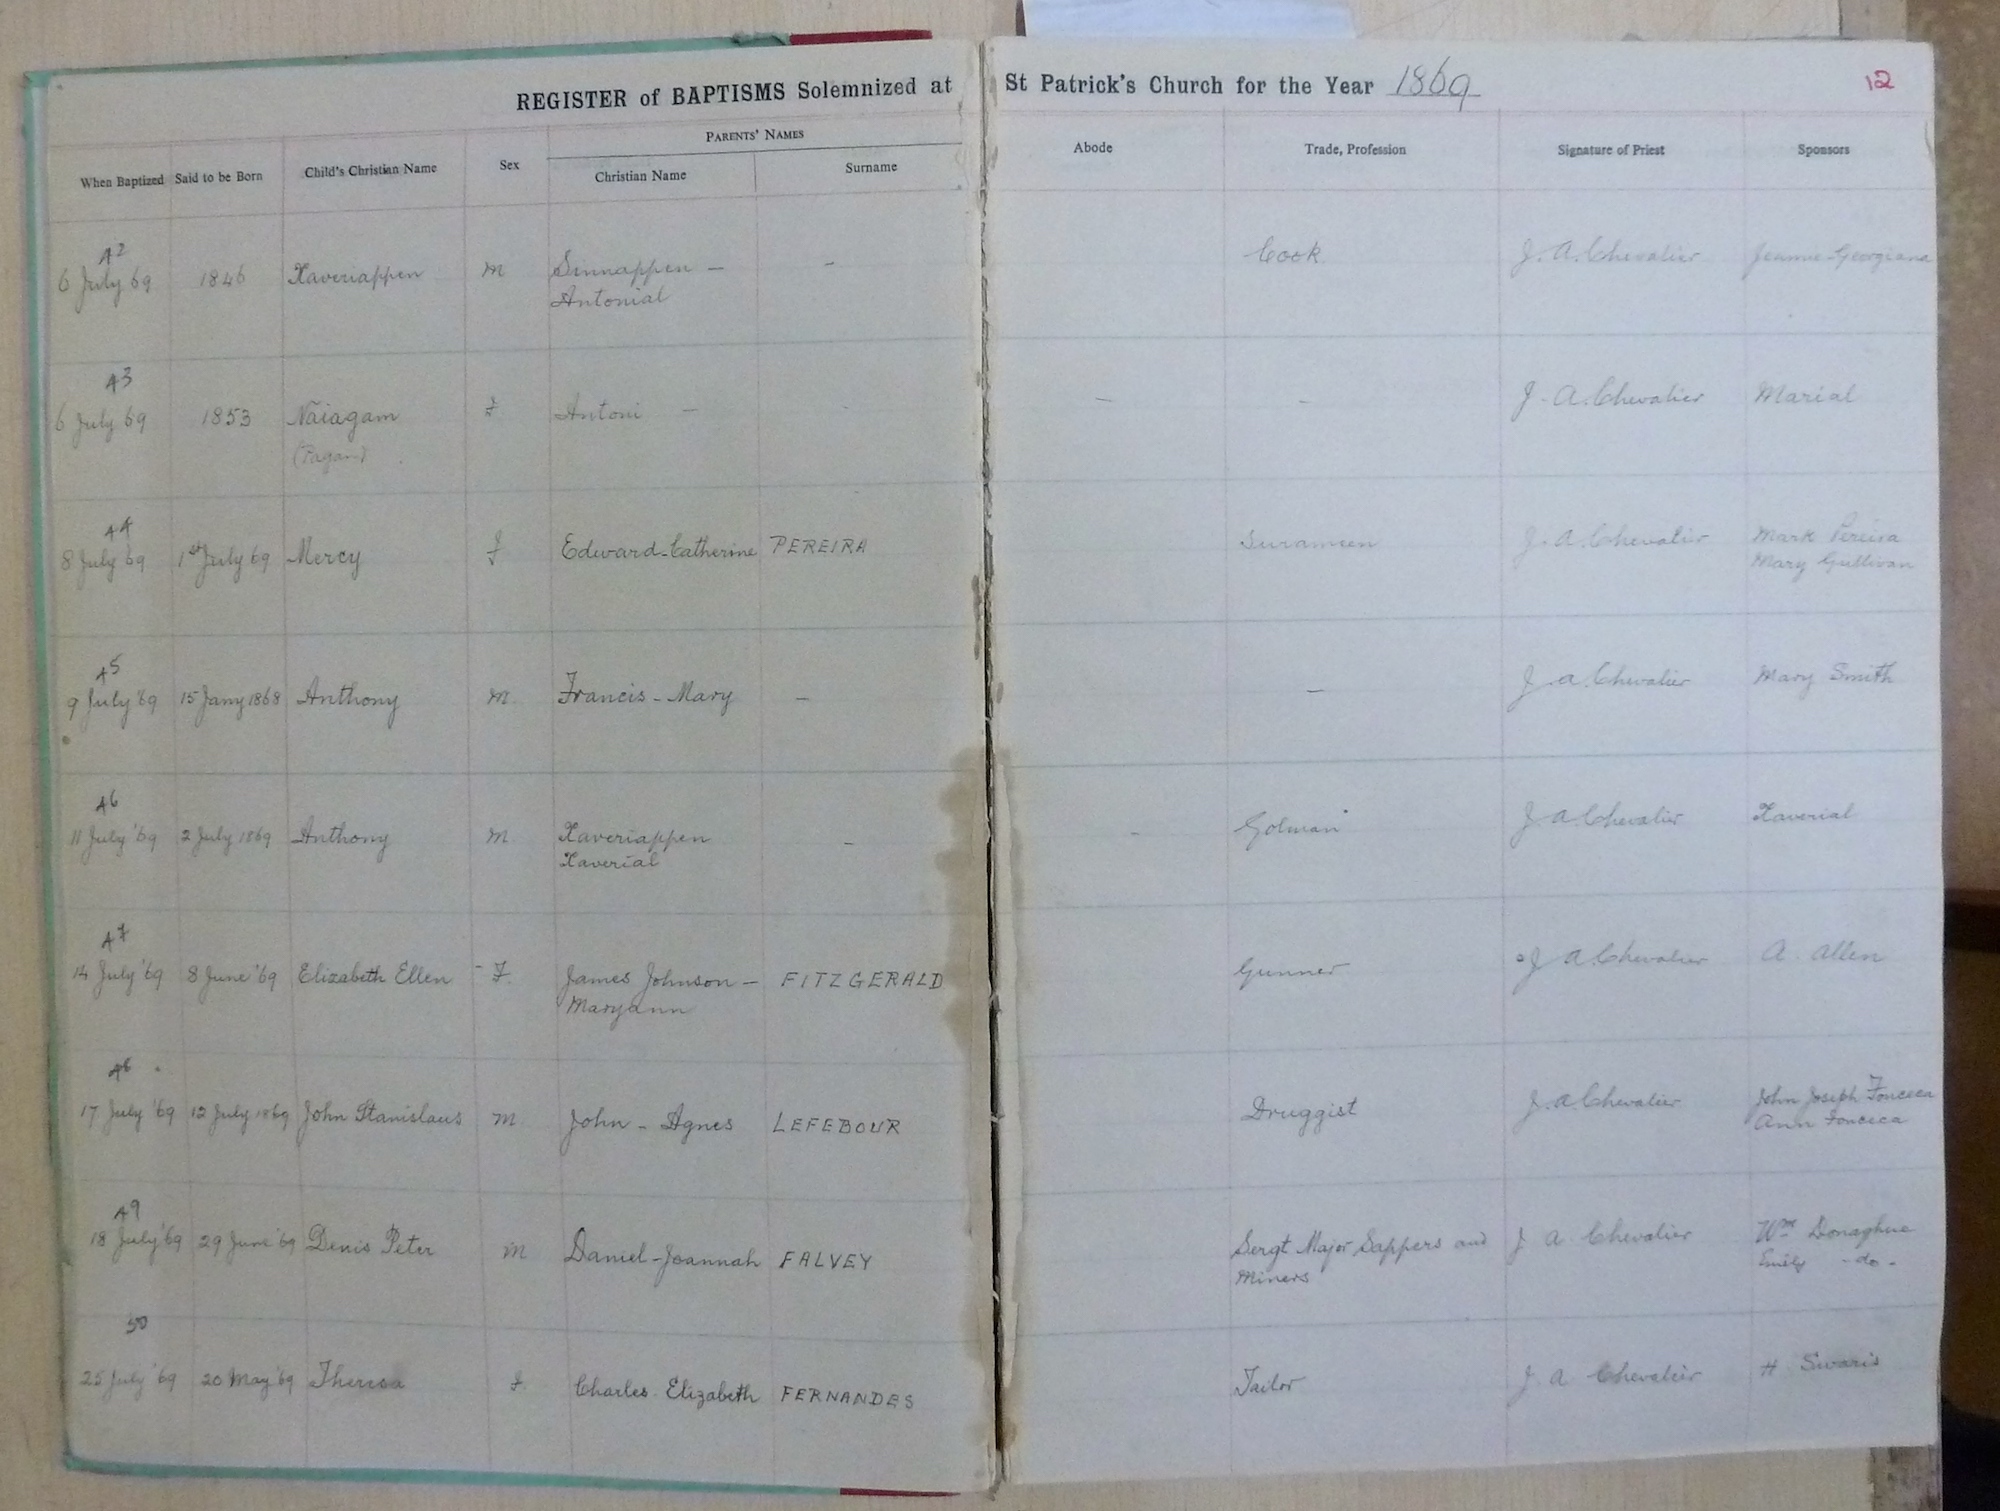 REGISTER of BAPTISMS Solemnized at St Patrick's Church for the Year 1869
12
When Baptized Said to be Born Child's Christian Name Sex PARENTS' NAMES Christian Name Surname Abode Trade, Profession Signature of Priest Sponsors
42
6 July 69 1846 Xaveriappen M Sinnappen — – Cook J. A. Chevalier Jeannie Georgiana
Antonial
43
6 July 69 1853 Naiagam F Antoni – - – – J. A. Chevalier Marial
(Pagan)
44
8 July 69 1st July 69 Mercy F Edward-Catherine PEREIRA J. A. Chevalier Mark Pereira
Mary Gullivan
45
9 July '69 15 Jany 1868 Anthony M. Francis - Mary – – J. A. Chevalier Mary Smith
46
11 July '69 2 July 1869 Anthony M Xaveriappen – - Golman J. A. Chevalier Xaverial
Xaverial
47
14 July '69 8 June '69 Elizabeth Ellen - F. James Johnson — FITZGERALD Gunner J A Chevalier A. Allen
Maryann
48
17 July '69 12 July 1869 John Stanislaus M John - Agnes LEFEBOUR Druggist J. A. Chevalier John Joseph Fonceca
Ann Fonceca
49
18 July '69 29 June '69 Denis Peter M Daniel-Joannah FALVEY Sergt Major Sappers and J A Chevalier Wm Donaghue
Miners Emily - do -
50
25 July '69 20 May '69 Theresa F. Charles. Elizabeth FERNANDES Tailor J A Chevalier H. Swaris